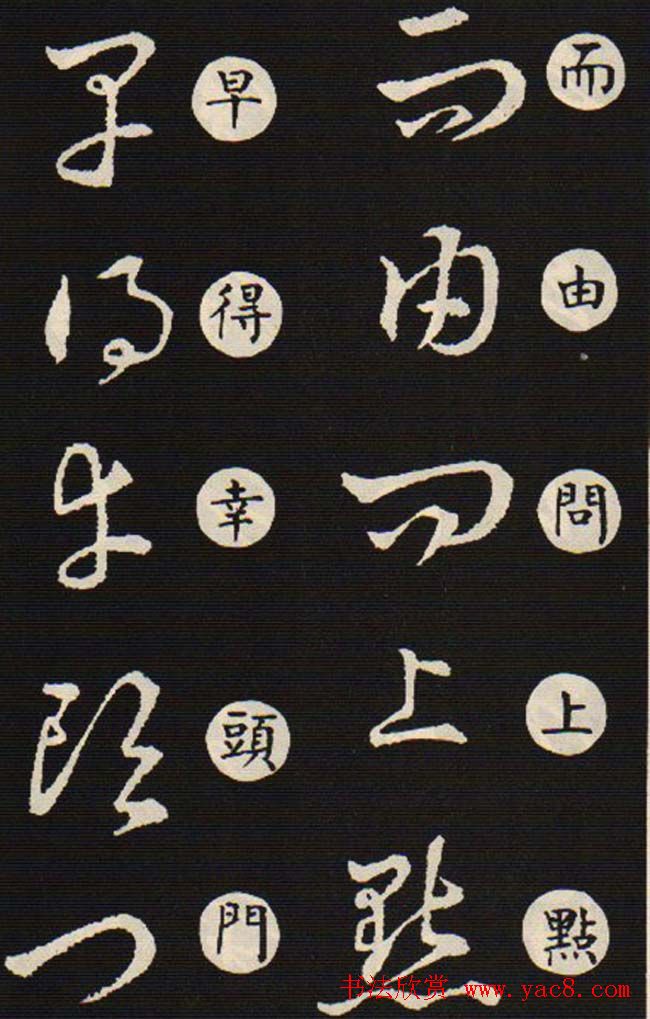 而由問上點
早得幸頭門
书法欣赏 www.yac8.com